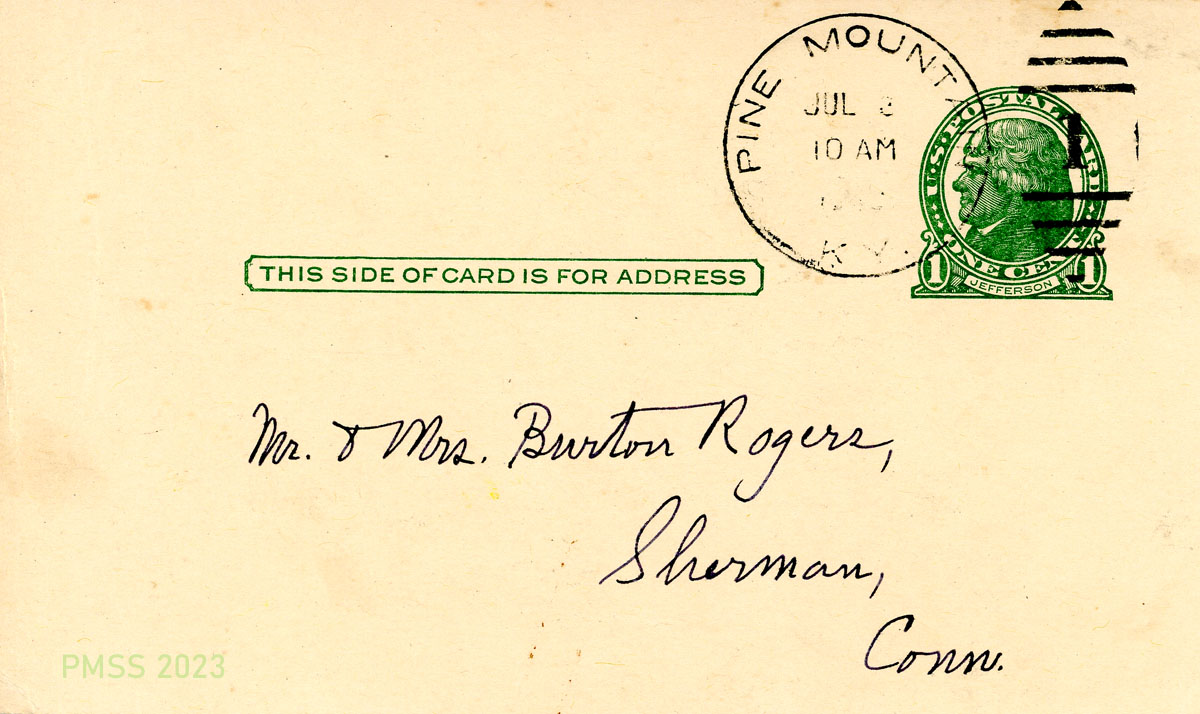 PINE MOUNT
JUL 3
10 AM
KY.
U.S. POSTAL CARD
ONE CENT
1 JEFFERSON 1
THIS SIDE OF CARD IS FOR ADDRESS
Mr. & Mrs. Burton Rogers,
Sherman,
Conn.
PMSS 2023